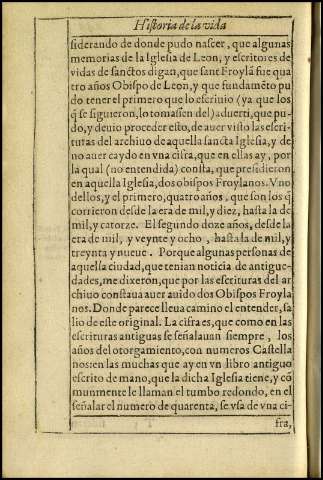 Historia de la vida
siderando de donde pudo nascer, que algunas
memorias de la Iglesia de Leon, y escritores de
vidas de sanctos digan, que sant Froylã fue qua
tro años Obispo de Leon, y que fundamẽto pu
do tener el primero que lo escriuio (ya que los
q̃ se siguieron, lo tomassen del) aduerti, que pu-
do, y deuio proceder esto, de auer visto las escri-
turas del archiuo de aquella sancta Iglesia, y de
no auer caydo en vna cifra, que en ellas ay, por
la qual (no entendida) consta, que presidieron
en aquella Iglesia, dos obispos Froylanos. Vno
dellos, y el primero, quatro años, que son los q̃
corrieron desde la era de mil, y diez, hasta la de
mil, y catorze. El segundo doze años, desde la
era de mil, y veynte y ocho, hasta la de mil, y
treynta y nueue. Porque algunas personas de
aquella ciudad, que tenian noticia de antigue-
dades, me dixeron, que por las escrituras del ar
chiuo constaua auer auido dos Obispos Froyla
nos. Donde parece lleua camino el entender, sa
lio de este original: La cifra es, que como en las
escrituras antiguas se señalauan siempre, los
años del otorgamiento, con numeros Castella
nos: en las muchas que ay en vn libro antiguo
escrito de mano, que la dicha Iglesia tiene, y cõ
munmente le llaman el tumbo redondo, en el
señalar el numero de quarenta, se vsa de vna ci-
fra,